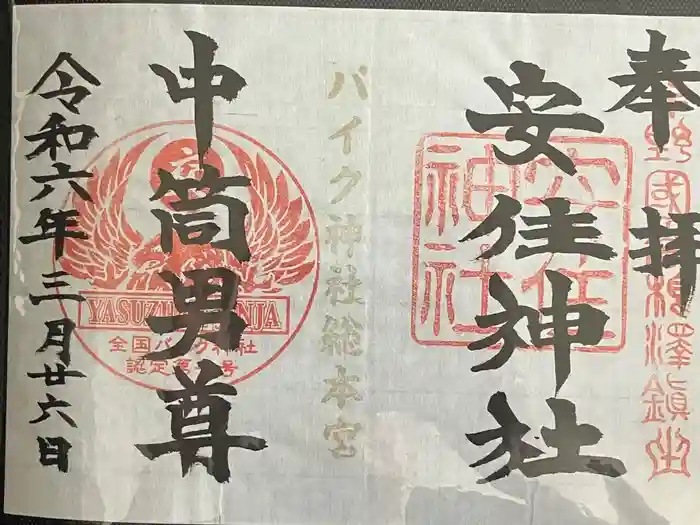 奉拝
野國高根澤鎮守
安住神社
安住神社
バイク神社総本宮
中筒男尊
YASUZUMI JINJA
全国バイク神社
認定第一号
令和六年三月廿六日